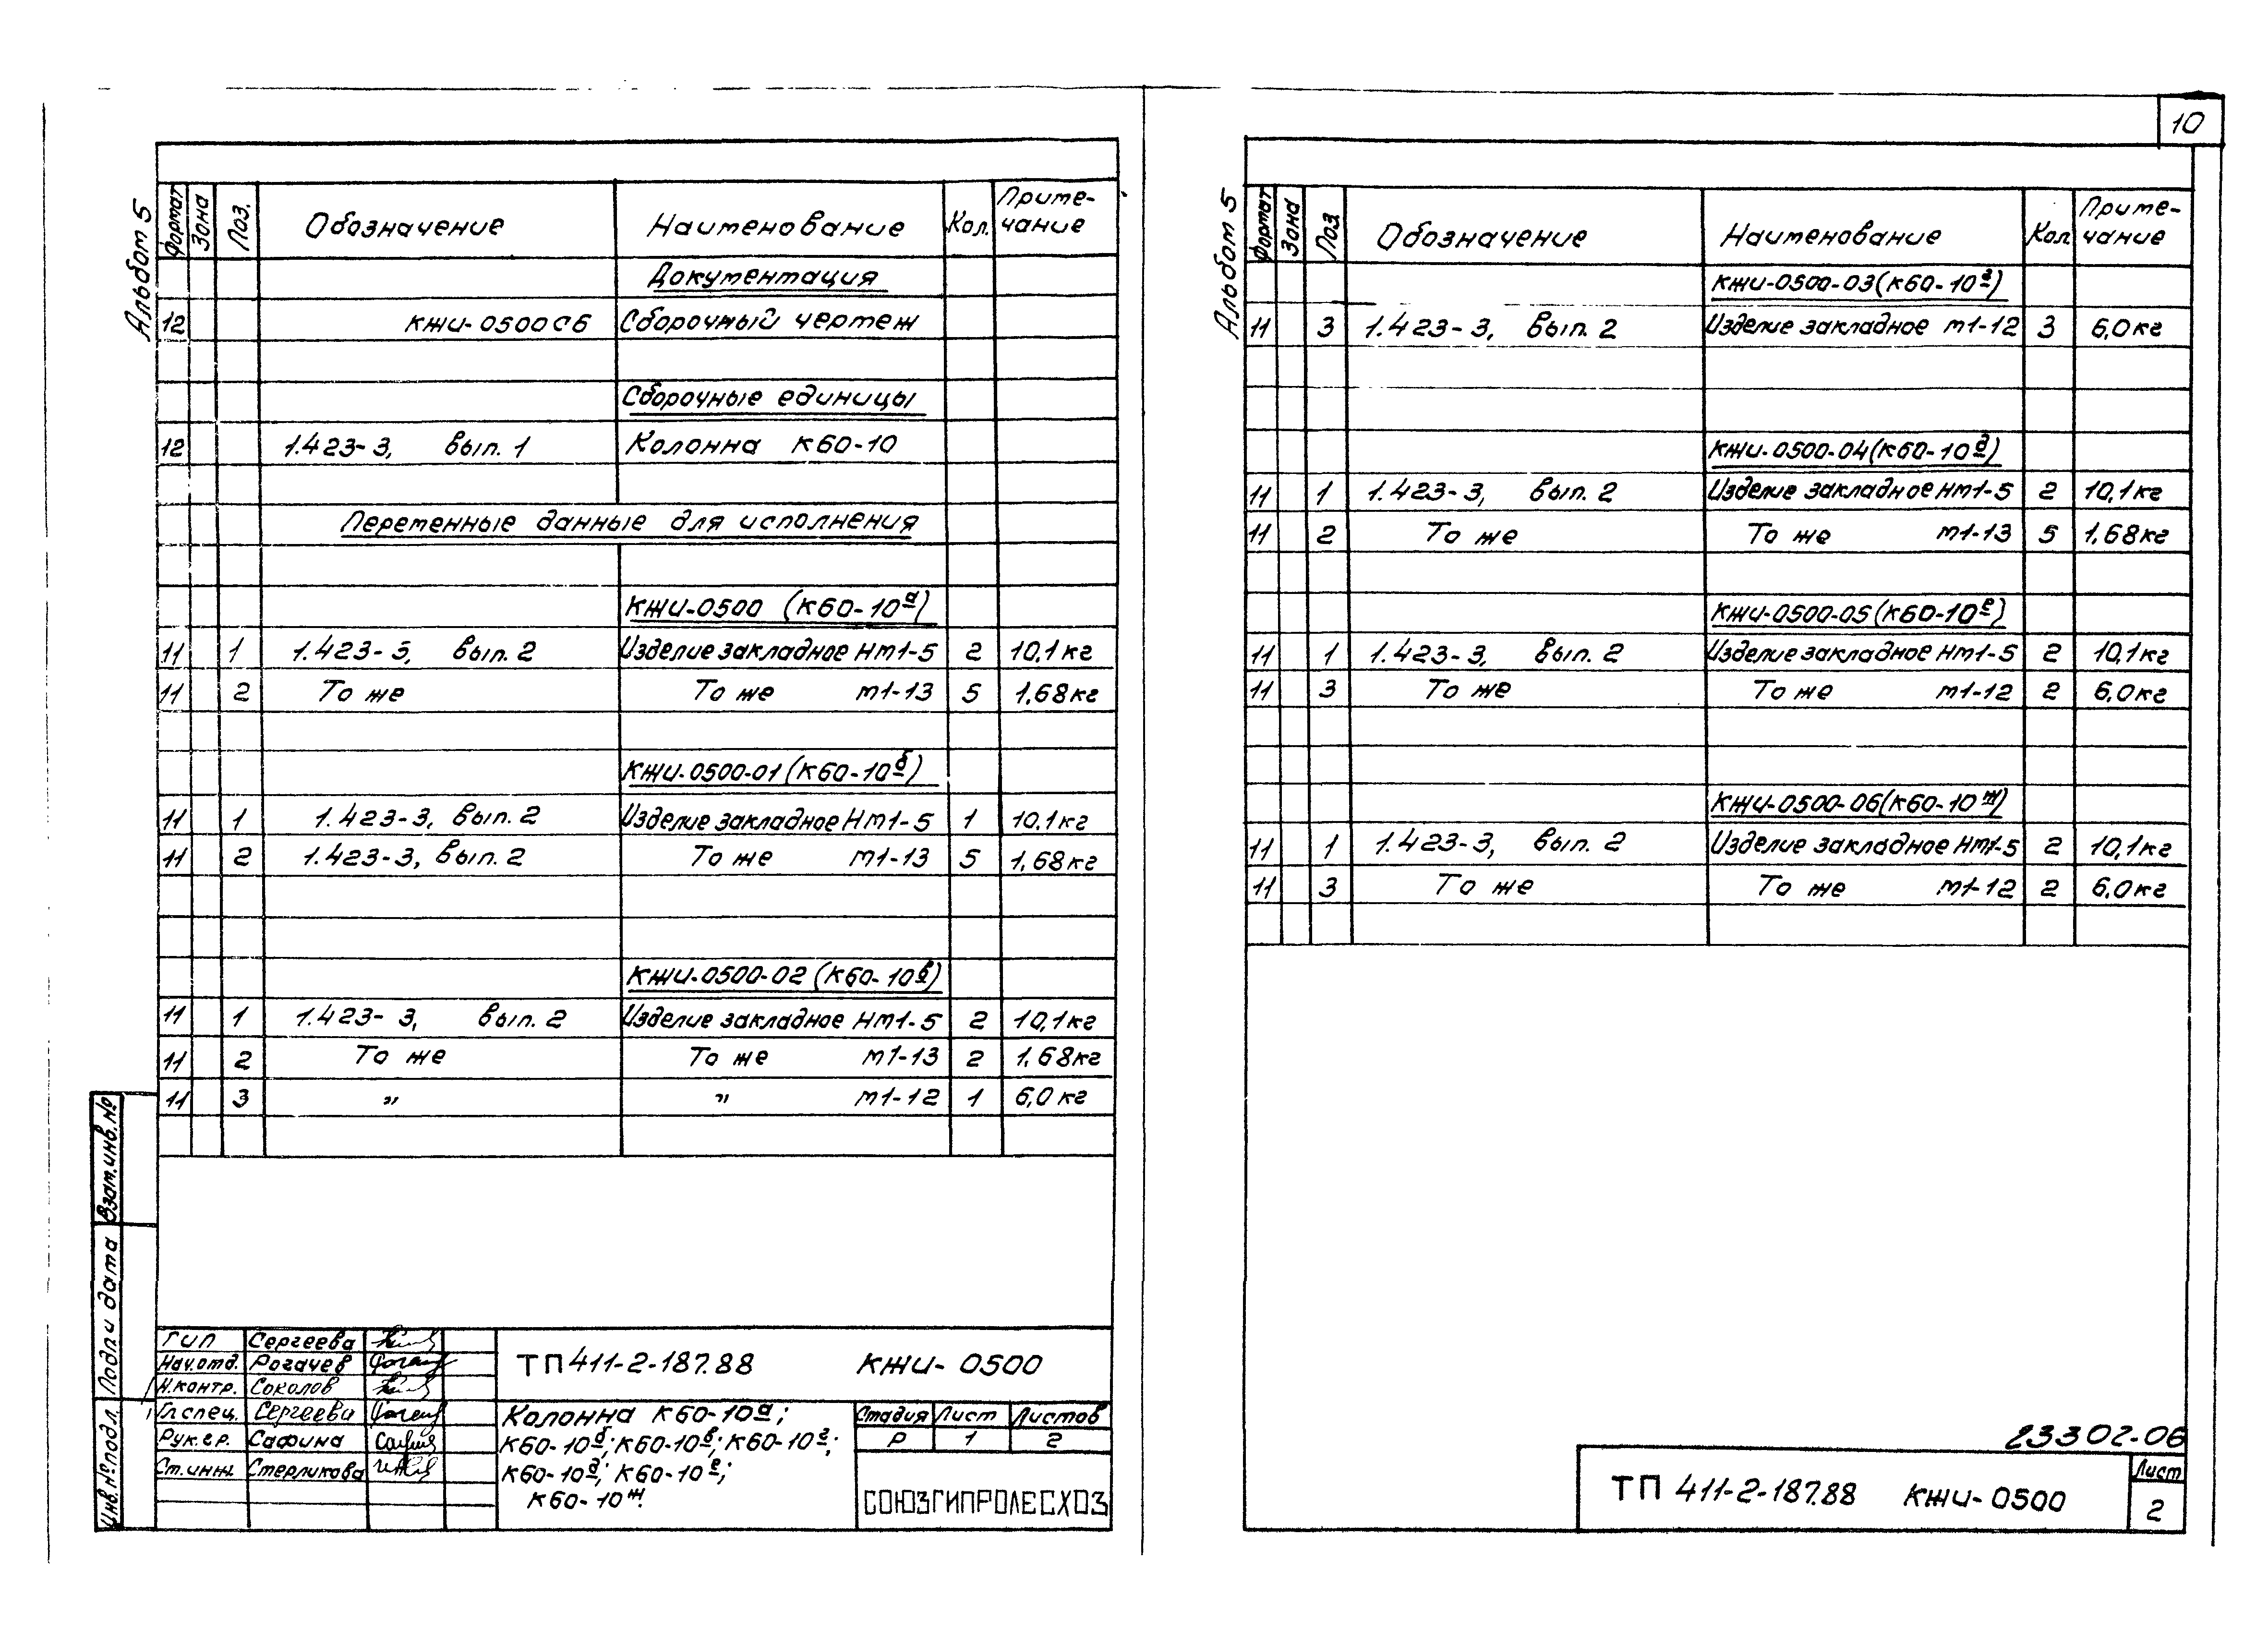 10
Альбом 5
Формат Зона Поз. Обозначение Наименование Кол. Приме-чание
Документация
12 КЖИ-0500СБ Сборочный чертеж
Сборочные единицы
12 1.423-3, вып. 1 Колонна К60-10
Переменные данные для исполнения
КЖИ-0500 (К60-10а)
11 1 1.423-3, вып. 2 Изделие закладное НМ1-5 2 10,1кг
11 2 То же То же М1-13 5 1,68кг
КЖИ-0500-01 (К60-10б)
11 1 1.423-3, вып. 2 Изделие закладное НМ1-5 1 10,1кг
11 2 1.423-3, вып. 2 То же М1-13 5 1,68кг
КЖИ-0500-02 (К60-10в)
11 1 1.423-3, вып. 2 Изделие закладное НМ1-5 2 10,1кг
11 2 То же То же М1-13 2 1,68кг
11 3 " " М1-12 1 6,0кг
Взам.инв.№
Подп.и дата
Инв.№подл.
ГИП Сергеева
Нач.отд. Рогачев
Н.контр. Соколов
Гл.спец. Сергеева
Рук.гр. Сафина
Ст.инж. Стерликова
ТП 411-2-187.88 КЖИ-0500
Колонна К60-10а;
К60-10б; К60-10в; К60-10г;
К60-10д; К60-10е;
К60-10ж.
Стадия Лист Листов
Р 1 2
СОЮЗГИПРОЛЕСХОЗ
Альбом 5
Формат Зона Поз. Обозначение Наименование Кол. Приме-чание
КЖИ-0500-03 (К60-10г)
11 3 1.423-3, вып. 2 Изделие закладное М1-12 3 6,0кг
КЖИ-0500-04 (К60-10д)
11 1 1.423-3, вып. 2 Изделие закладное НМ1-5 2 10,1кг
11 2 То же То же М1-13 5 1,68кг
КЖИ-0500-05 (К60-10е)
11 1 1.423-3, вып. 2 Изделие закладное НМ1-5 2 10,1кг
11 3 То же То же М1-12 2 6,0кг
КЖИ-0500-06 (К60-10ж)
11 1 1.423-3, вып. 2 Изделие закладное НМ1-5 2 10,1кг
11 3 То же То же М1-12 2 6,0кг
23302-06
ТП 411-2-187.88 КЖИ-0500
Лист
2